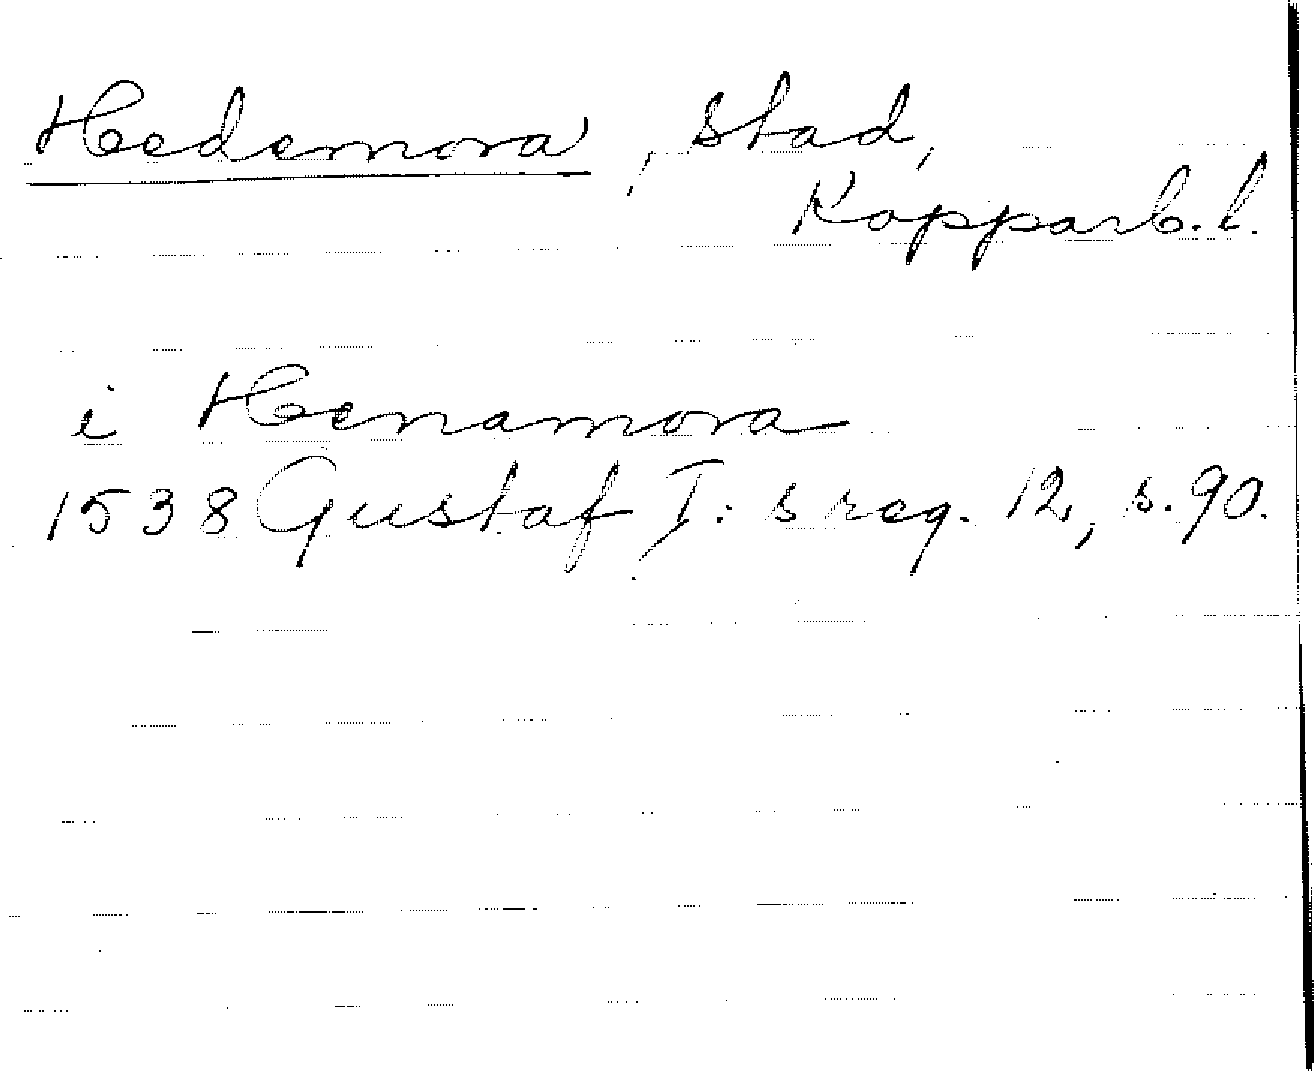 Hedemora, stad,
Kopparb. l.
i Henamora
1538 Gustaf I:s reg. 12, s. 90.